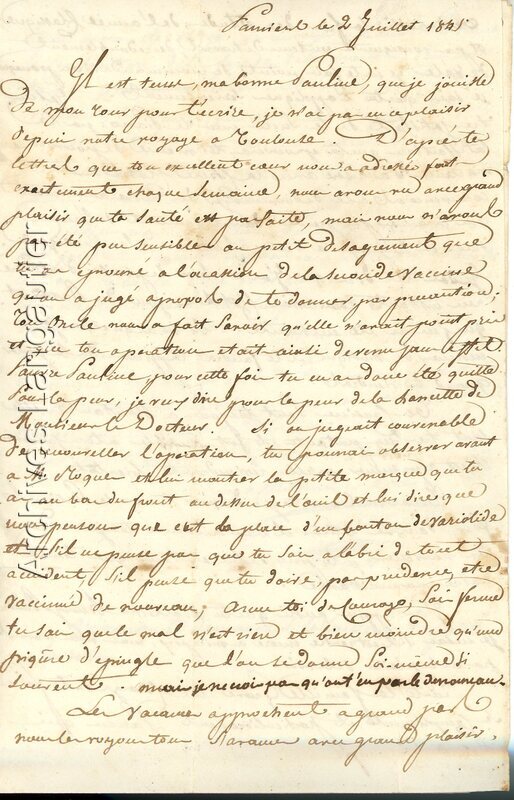 Pamiers le 2 Juillet 1845
Il est tems, ma bonne Pauline, que je jouisse
de mon tour pour t'écrire, je n'ai pas eu ce plaisir
depuis notre voyage à Toulouse. D'après les
lettres que ton excellent cœur nous a adressé fort
exactement chaque semaine, nous avons vu avec grand
plaisir que ta santé est parfaite, mais nous n'avons
pas été peu sensibles au petit désagrément que
tu as éprouvé à l'occasion de la seconde vaccine
qu'on a jugé apropos de te donner par prévention;
ton oncle nous a fait savoir qu'elle n'avait point pris
et que ton opération était ainsi devenu sans effet.
Pauvre Pauline pour cette fois tu en as donc été quitte
pour la peur, je veux dire pour la peur de la lancette de
Monsieur le Docteur. Si on jugeait convenable
de renouveller l'opération, tu pourrais observer avant
a Mr Roques et lui montrer la petite marque que tu
as au bas du front au dessus de l'œil et lui dire que
nous pensons que c'est la place d'un bouton de varioloïde
et s'il ne pense pas que tu sois à l'abri de tout
accident, s'il pense que tu doive, par prudence, etre
vaccinée de nouveau, arme toi de courage, sois ferme
tu sais que le mal n'est rien et bien moindre qu'une
piqûre d'épingle que l'on se donne soi-même si
souvent. mais je ne crois pas qu'on t'en parle de nouveau.
Les vacances approchent à grand pas
nous les voyons tous s'avancer avec grand plaisir,